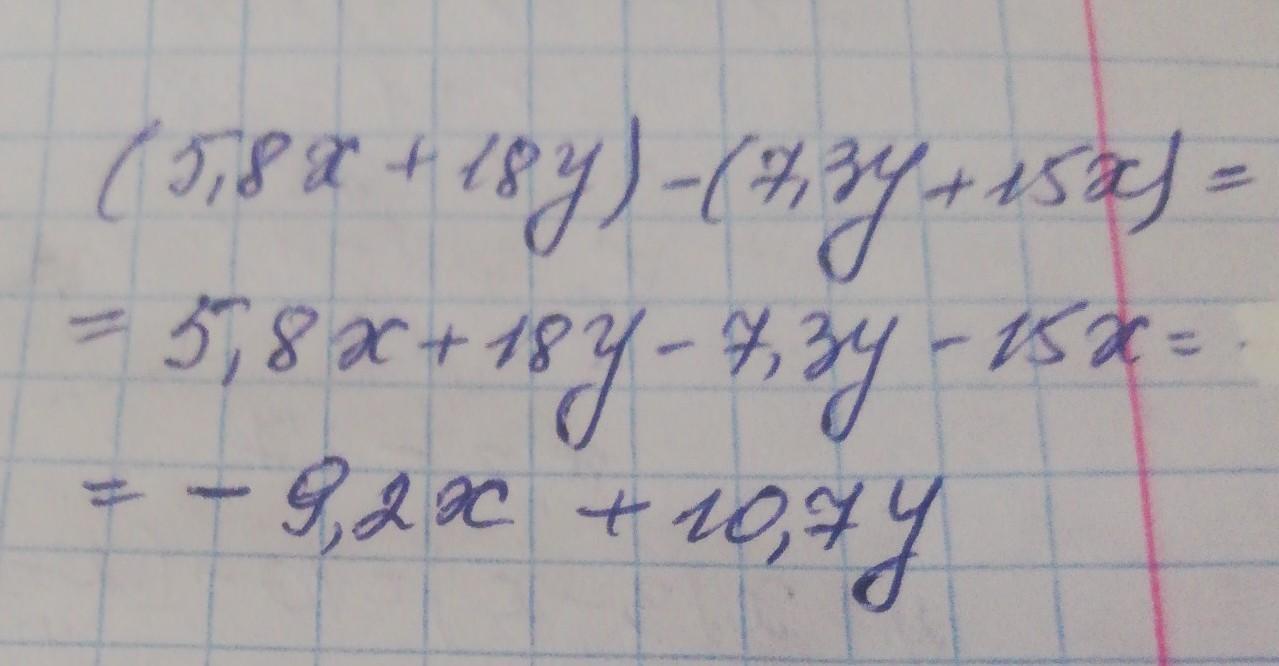 (5,8x + 18y) - (7,3y + 15x) =
= 5,8x + 18y - 7,3y - 15x =
= - 9,2x + 10,7y